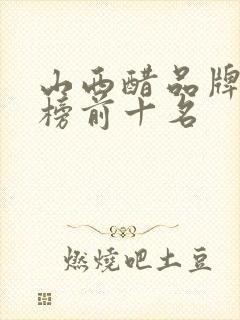 山西醋品牌
榜前十名
燃燒吧土豆